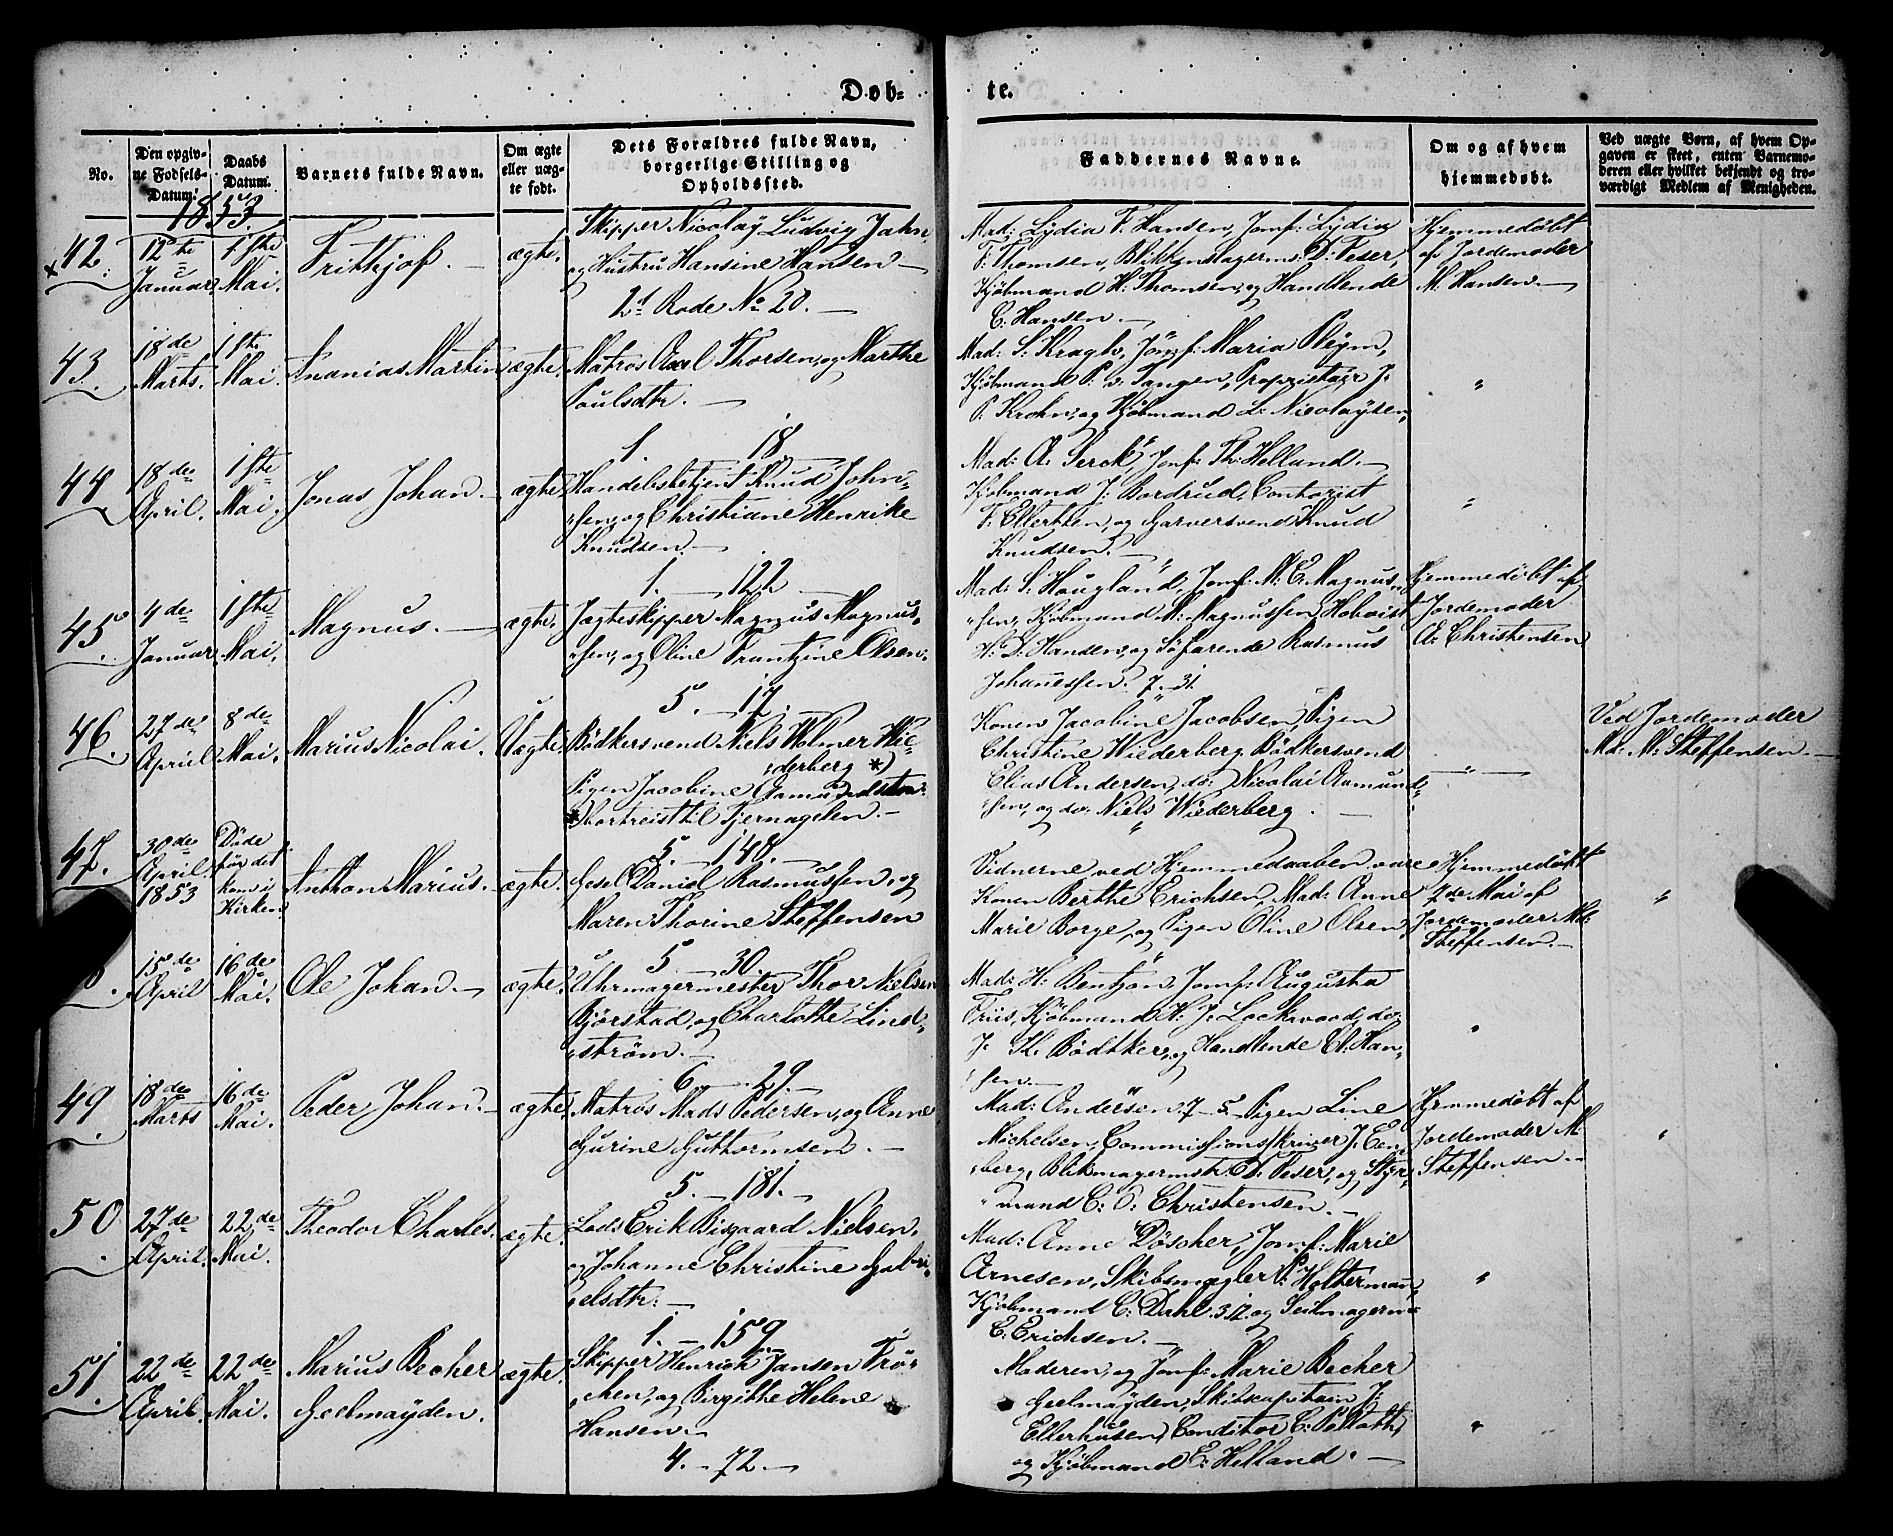 Døb-
te.
No.
Den opgiv-
ne Fødsels-
Datum.
Daabs
Datum.
Barnets fulde Navn.
Om ægte
eller uæg-
te født.
Dets Forældres fulde Navn,
borgerlige Stilling og
Opholdssted.
Faddernes Navne.
Om og af hvem
hjemmedøbt.
Ved uægte Børn, af hvem Op-
gaven er skeet, enten Barnemo-
deren eller hvilket bekjendt og tro-
værdigt Medlem af Menigheden.
1853
x 42.
12te
Januar
1ste
Mai.
Frithjof.
ægte.
Skipper Nicolay Ludvig Jahn,
og Hustru Hansine Hansen
2d Rode No 20.
Mad: Lydia F. Hansen, Jomf: Lydia
F. Thomsen, Blikkenslagerms. D. Peser,
Kjøbmand H. Thomsen, og Handlende
C. Hansen.
Hjemmedøbt
af Jordemoder
M. Hansen.
43.
18de
Marts.
1ste
Mai.
Ananias Martin
ægte.
Matros Axel Thorsen, og Marthe
Poulsdtr.
1. 18.
Mad: S. Kragh, Jomf: Maria Pleym,
Kjøbmand P. v. Tangen, Proprietair J.
P. Krohn, og Kjøbmand L. Nicolaysen,
"
44
18de
April.
1ste
Mai.
Jonas Johan.
ægte
Handelsbetjent Knud John-
sen, og Christiane Henrike
Knudsen.
1. 122
Mad: A. Serck, Jomf: Th. Helland.
Kjøbmand J. Bordrud, Contorist
F. Ellertsen, og Garversvend Knud
Knudsen.
"
45
4de
Januar
1ste
Mai.
Magnus.
ægte.
Jagteskipper Magnus Magnus-
sen, og Oline Frantzine Olsen.
5. 17.
Mad: S. Hougland, Jomf: M. E. Magnus-
sen, Kjøbmand M. Magnussen, Hoboist
H. D. Hansen, og Søfarende Rasmus
Johannessen. 7. 31.
Hjemmedøbt af
Jordemoder
A. Christensen
46.
27de
April
8de
Mai.
Marius Nicolai.
Uægte
Bødkersvend Niels Wolmer Wie-
derberg *)
Pigen Jacobine Aamundsdatter
*) bortreist til Fjernagelen.
5. 148.
Konen Jacobine Jacobsen, Pigen
Christine Wiederberg, Bødkersvend
Elias Andersen, do: Nicolai Aamund-
sen, og do: Niels Wiederberg.
"
Ved Jordemoder
Md. M. Steffensen.
47.
30de
April
1853
Døde
før det
kom i
Kirken
Anthon Marius.
ægte.
Gesel Daniel Rasmussen, og
Maren Thorine Steffensen
5. 30.
Vidnerne ved Hjemmedaaben vare
Konen Berthe Erichsen, Mad: Anne
Marie Borge, og Pigen Oline Olsen,
Hjemmedøbt
7de Mai af
Jordemoder Md:
Steffensen.
"
8.
15de
April
16de
Mai.
Ole Johan.
ægte.
Uhrmagermester Thor Nielsen
Bjørstad, og Charlotte Lind-
strøm.
6. 29.
Mad: H. Bentzon, Jomf: Augusta
Friis, Kjøbmand H. J. Lockwood, do:
J. Th. Bødtker, og Handlende Chr. Han-
sen.
"
49
18de
Marts
16de
Mai.
Peder Johan.
ægte.
Matros Mads Pedersen, og Anne
Gurine Guttormsen.
5. 181.
Mad: Andersen 7-5. Pigen Line
Michelsen, Commissionsskriver J. Een-
berg, Blikmagermstr. D. Peser, og Styr-
mand C. O. Christensen.
Hjemmedøbt af
Jordemoder M.
Steffensen.
"
50
27de
April.
22de
Mai.
Theodor Charles.
ægte.
Lods Erik Bisgaard Nielsen,
og Johanne Christine Gabri-
elsdtr:
1. 159.
Mad: Anne Døscher, Jomf: Marie
Arnesen, Skibsmægler P. Holtermann,
Kjøbmand C. Dahl. 3.12. og Seilmagerm.
C. Erichsen.
"
51
22de
April.
22de
Mai.
Marius Becher
Geelmuyden.
ægte.
Skipper Henrich Jansen Frør-
chen, og Birgitthe Helene
Hansen.
4. 72.
Moderen, og Jomf: Marie Becher
Geelmuyden, Skibskapitain J.
Ellerhusen, Conditor C. Pellath,
og Kjøbmand E. Helland.
"